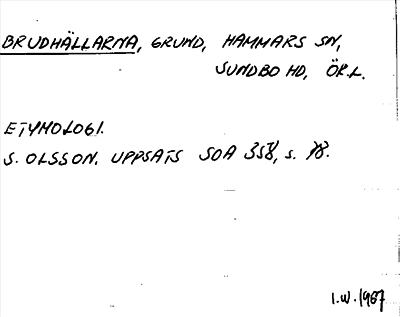 BRUDHÄLLARNA, GRUND, HAMMARS SN,
SUNDBO HD, ÖR.L.
ETYMOLOGI.
S. OLSSON. UPPSATS SOA 358, s. 78.
I.W. 1967